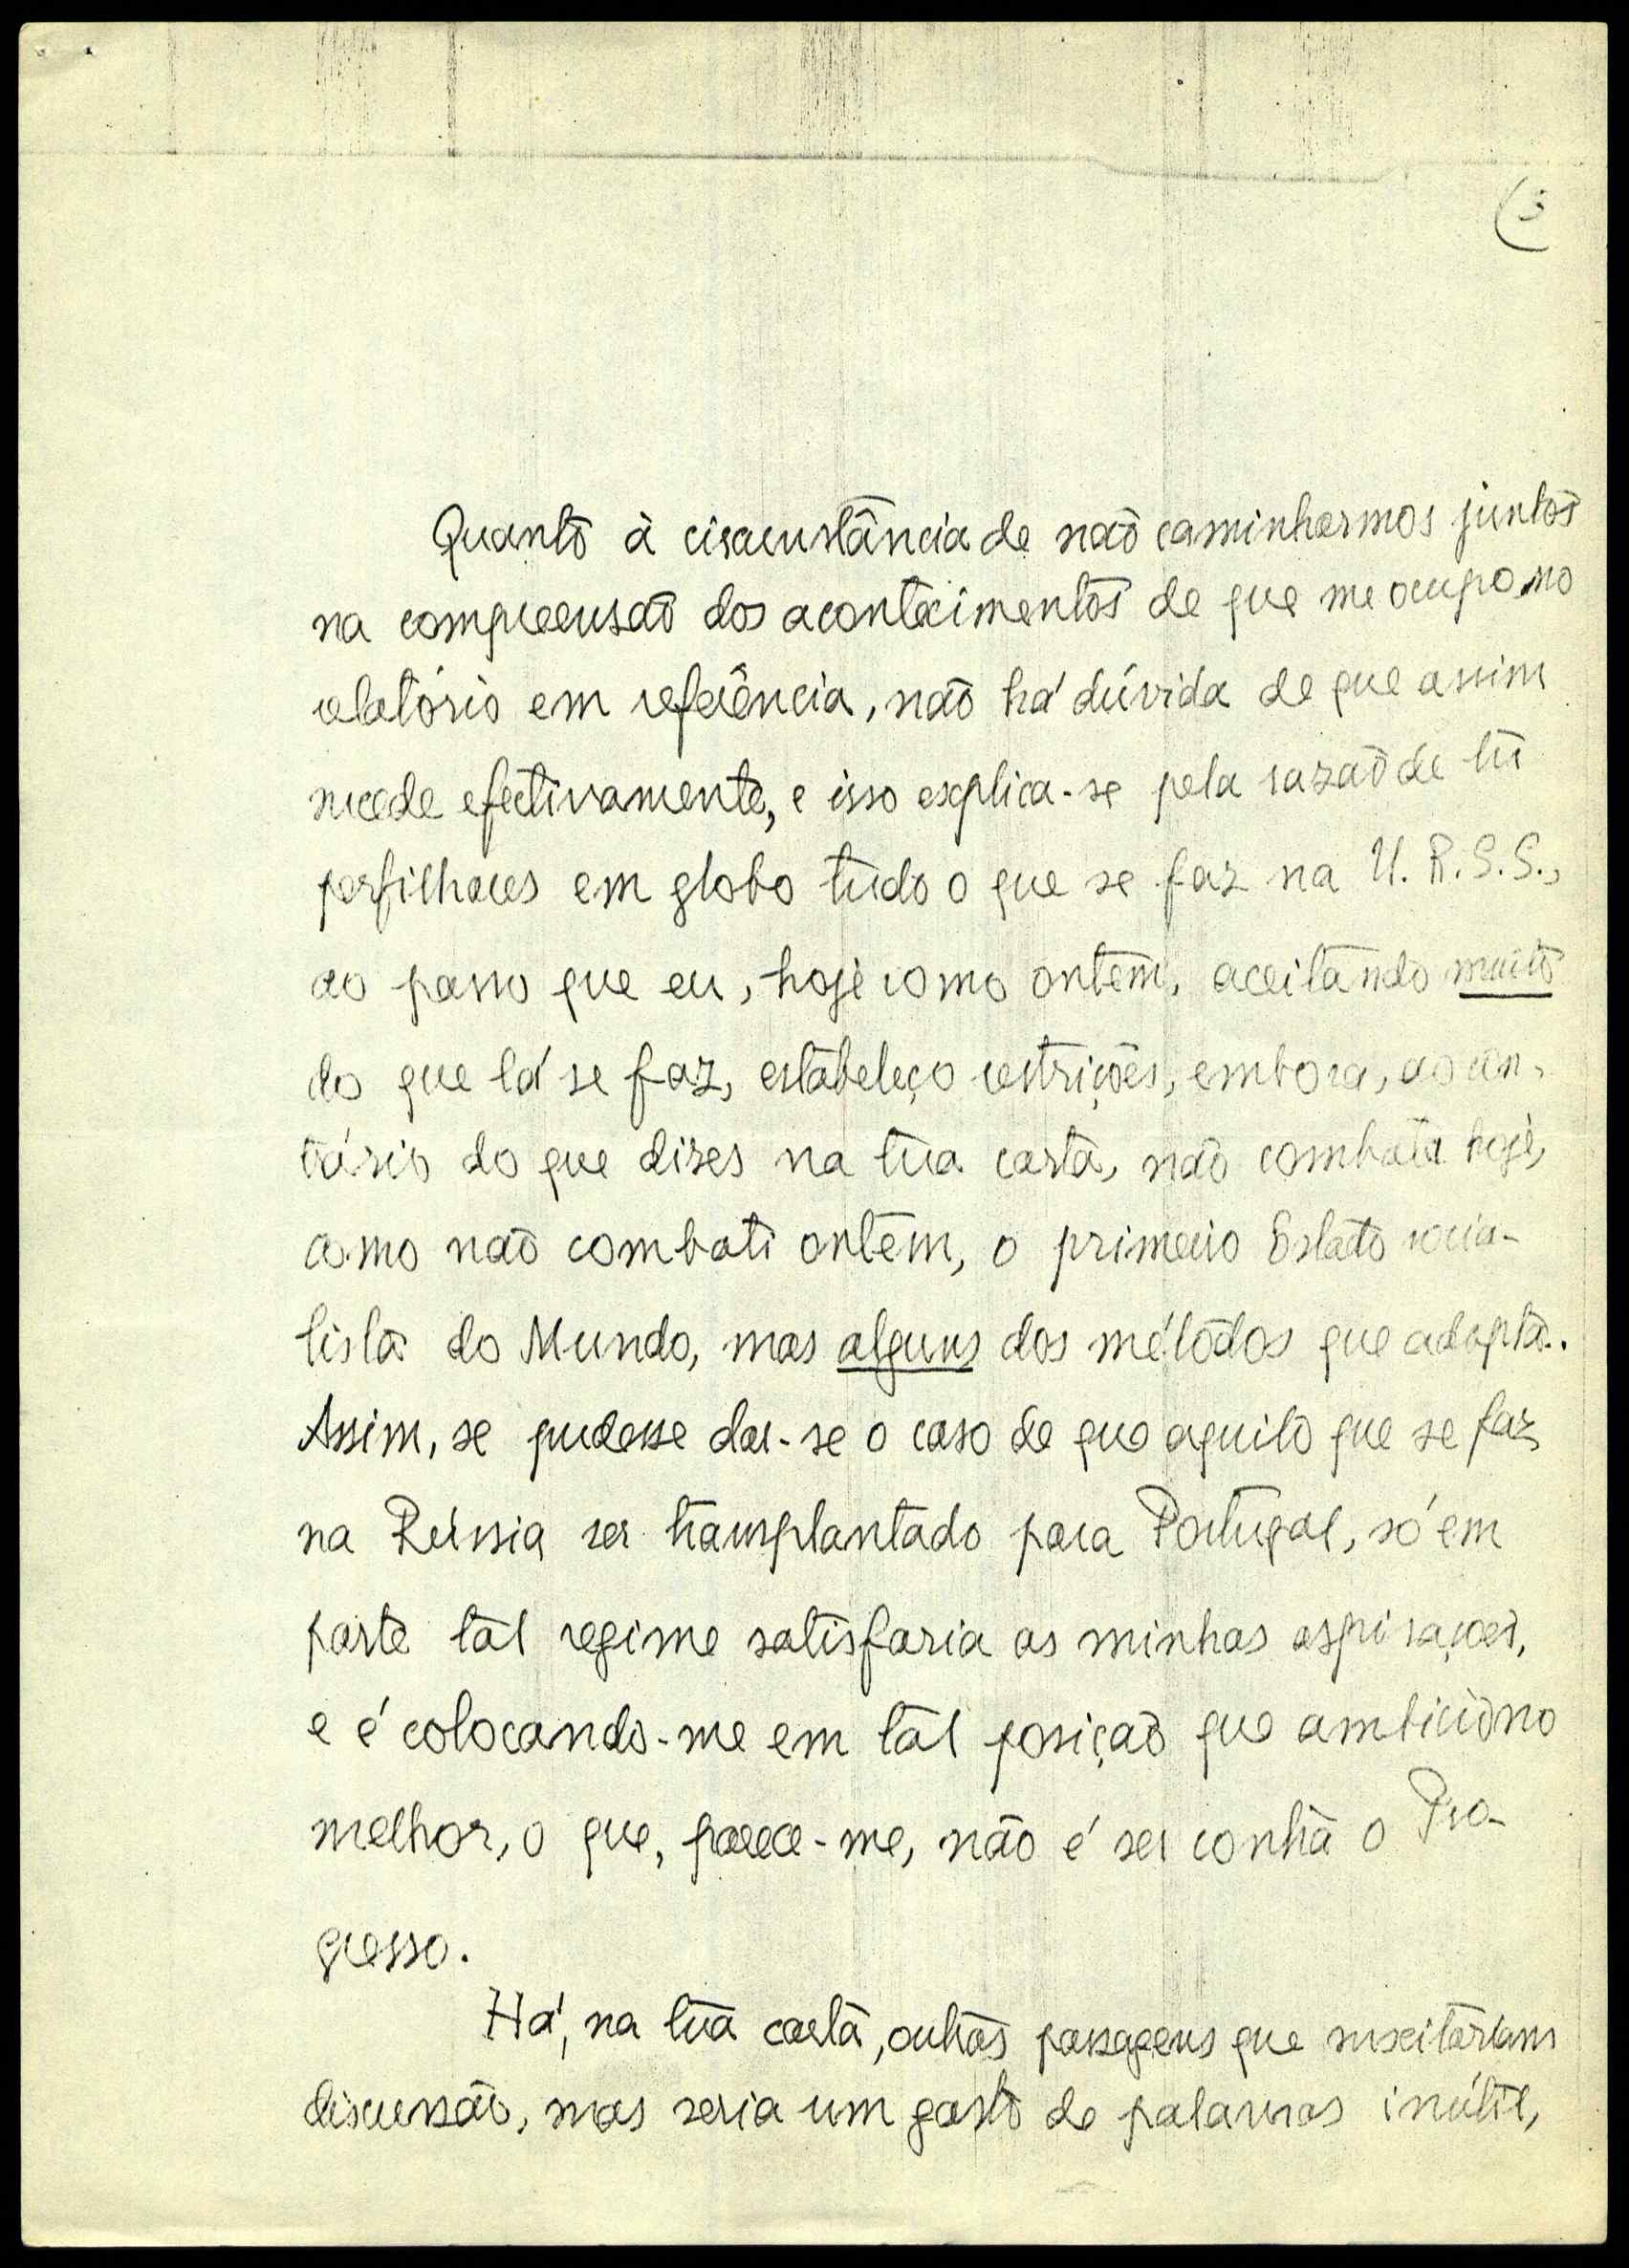 (3
Quanto à circunstância de não caminharmos juntos
na compreensão dos acontecimentos de que me ocupo no
relatório em referência, não há dúvida de que assim
sucede efectivamente, e isso explica-se pela razão de tu
perfilhares em globo tudo o que se faz na U.R.S.S.,
ao passo que eu, hoje como ontem, aceitando muito
do que lá se faz, estabeleço restrições, embora, ao con-
trário do que dizes na tua carta, não combata hoje,
como não combati ontem, o primeiro Estado socia-
lista do Mundo, mas alguns dos métodos que adopta.
Assim, se pudesse dar-se o caso de que aquilo que se faz
na Rússia ser transplantado para Portugal, só em
parte tal regime satisfaria as minhas aspirações,
e é colocando-me em tal posição que ambiciono
melhor, o que, parece-me, não é ser contra o Pro-
gresso.
Há, na tua carta, outras passagens que suscitariam
discussão, mas seria um gasto de palavras inútil,